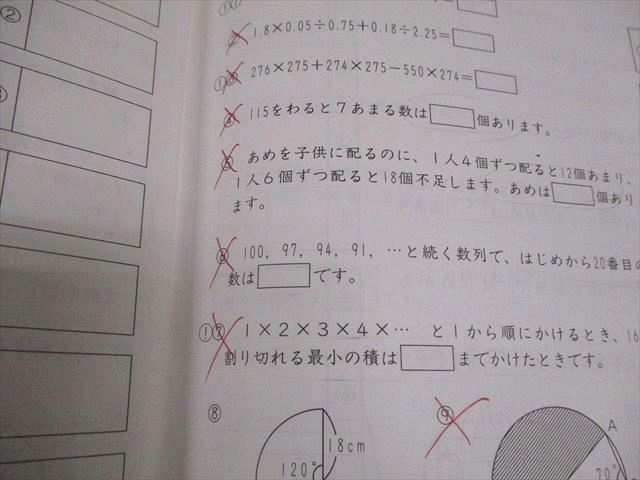 ②
③
①
② 1.8×0.05÷0.75+0.18÷2.25=
①③ 276×275+274×275−550×274=
④ 115をわると7あまる数は 個あります。
⑤ あめを子供に配るのに、1人4個ずつ配ると12個あまり、
1人6個ずつ配ると18個不足します。あめは 個あり
ます。
⑥ 100, 97, 94, 91, …と続く数列で、はじめから20番目の
数は です。
①⑦ 1×2×3×4×… と1から順にかけるとき、16
割り切れる最小の積は までかけたときです。
⑧ ⑨
18cm
120°
A
70°